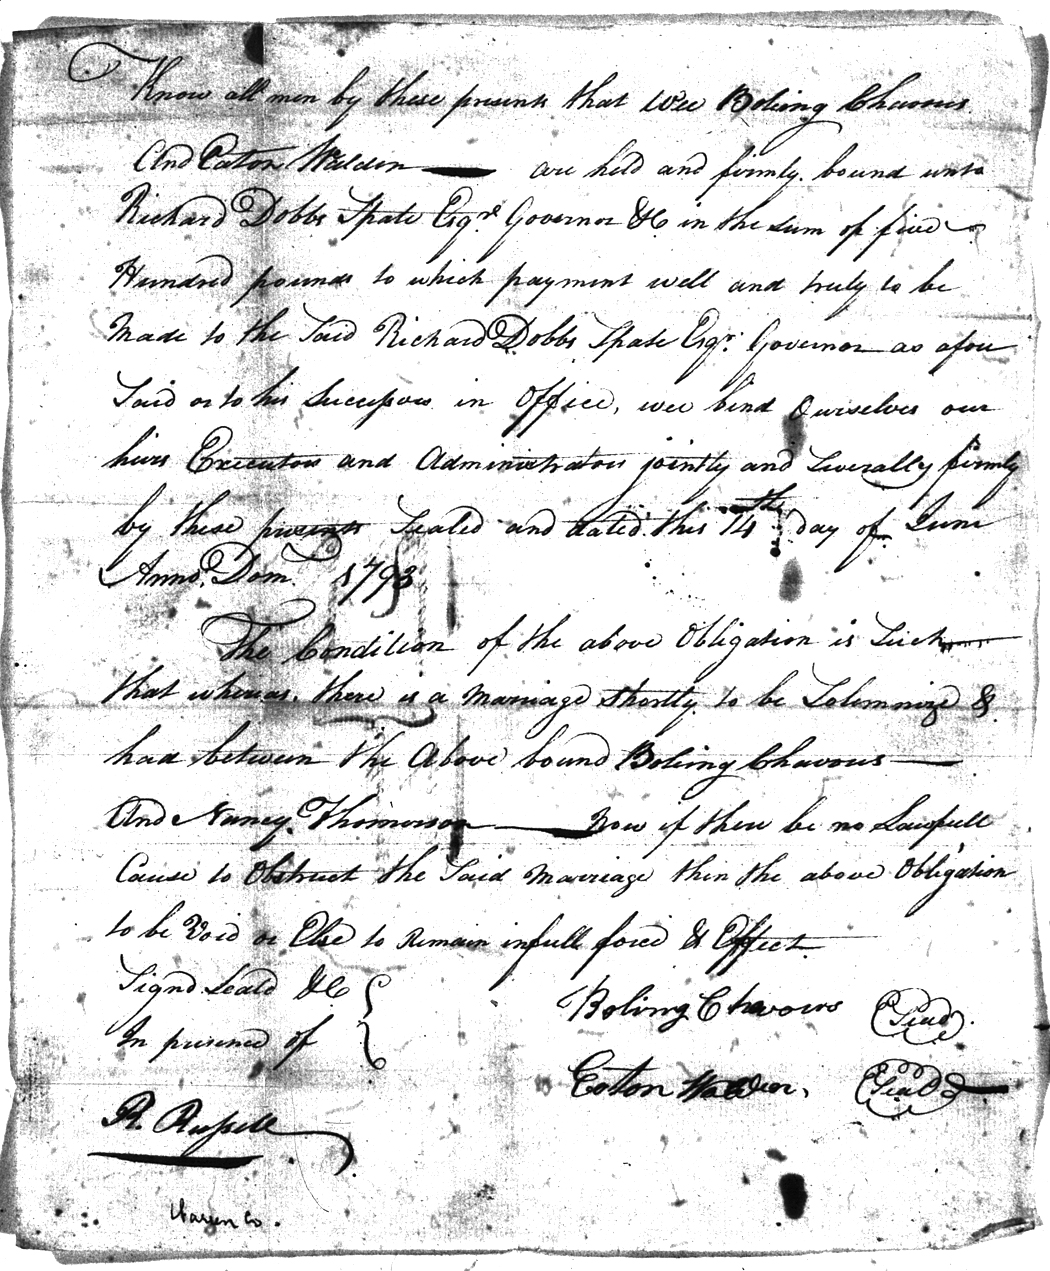 Know all men by these presents that Wee Boling Chavous
And Eaton Walden are held and firmly bound unto
Richard Dobbs Spate Esqr. Governor &C in the sum of five
Hundred pounds to which payment well and truly to be
Made to the Said Richard Dobbs Spate Esqr. Governor as afore
Said or to his Successors in Office, wee bind Ourselves our
hiers Executors and Administrators jointly and Severally firmly
by these presents Sealed and dated this 14th day of June
Anno. Dom. 1793
The Condition of the above Obligation is Such
that whereas, there is a Marriage Shortly to be Solemnize &
had between the Above bound Boling Chavous
And Nancy Thomerson Now if there be no Lawfull
Cause to Obstruct the Said Marriage then the above Obligation
to be Void or Else to Remain in full force & Effect
Signd Seald &C
In presence of
Boling Chavous Seal
Eaton Walden, Seal
R. Russell
Warren Co.